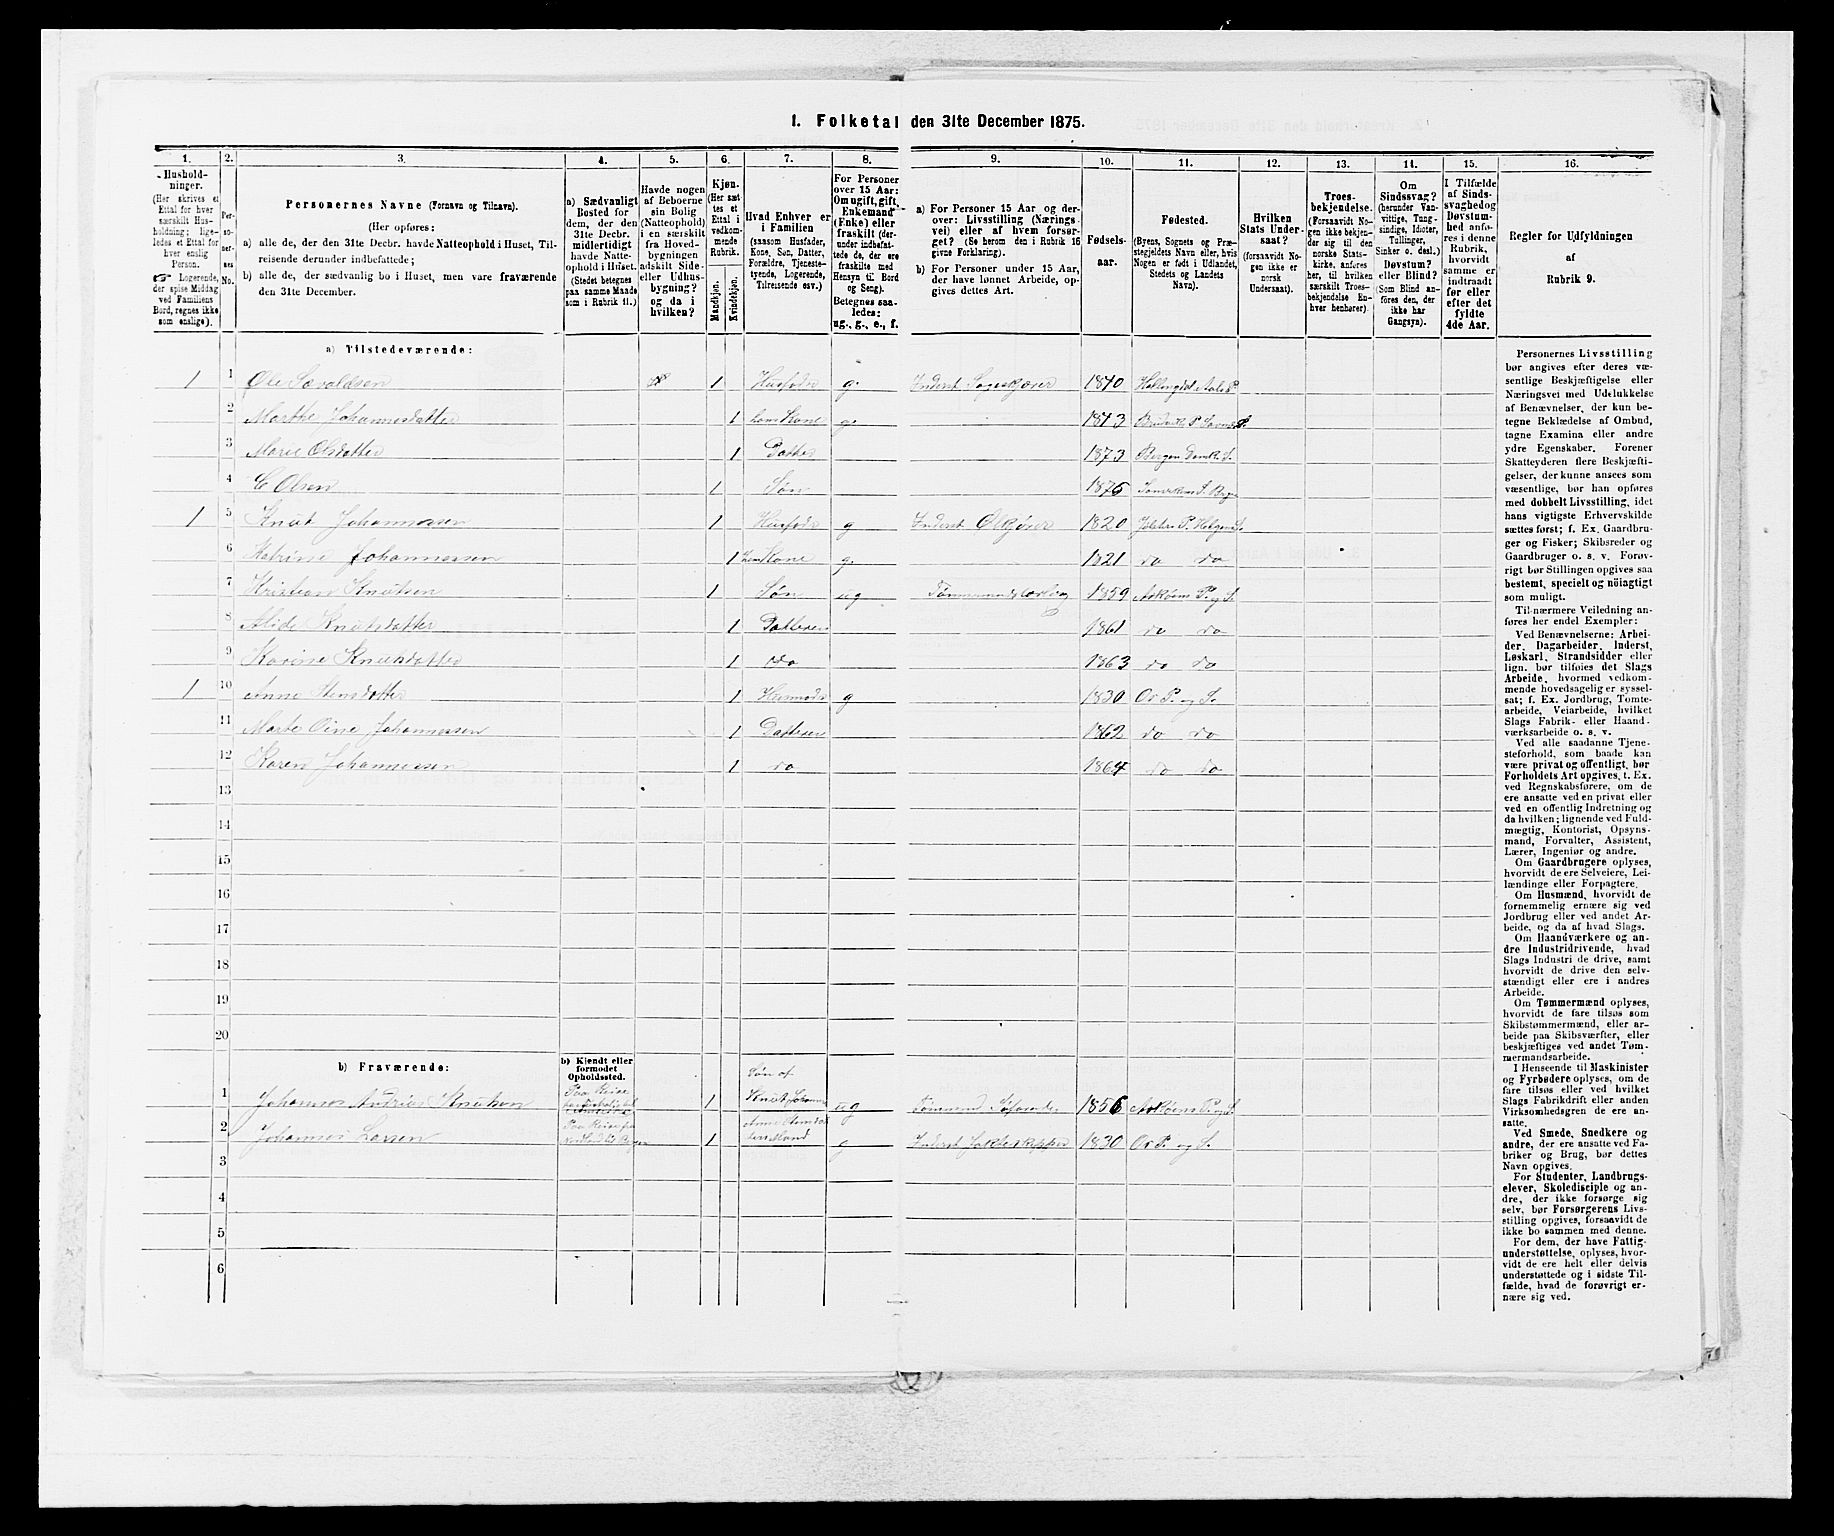 1. Folketal den 31te December 1875.
1. 2. 3. 4. 5. 6. 7. 8. 9. 10. 11. 12. 13. 14. 15. 16.
Hushold-
ninger.
(Her skrives et
Ettal for hver
særskilt Hus-
holdning; lige-
ledes et Ettal for
hver enslig
Person.
☞ Logerende,
der spise Middag
ved Familiens
Bord, regnes ikke
som enslige).
Per-
so-
ner-
nes
No.
Personernes Navne (Fornavn og Tilnavn).
(Her opføres:
a) alle de, der den 31te Decbr. havde Natteophold i Huset, Til-
reisende derunder indbefattede;
b) alle de, der sædvanlig bo i Huset, men vare fraværende
den 31te December.
a) Sædvanligt
Bosted for
dem, der den
31te Decbr.
midlertidigt
havde Natte-
ophold i Huset.
(Stedet betegnes
paa samme Maade
som i Rubrik 11.)
Havde nogen
af Beboerne
sin Bolig
(Natteophold)
i en særskilt
fra Hoved-
bygningen
adskilt Side-
eller Udhus-
bygning?
og da i
hvilken?
Kjøn.
(Her sæt-
tes et
Ettal i
vedkom-
mende
Rubrik.
Mandkjøn.
Kvindekjøn.
Hvad Enhver er
i Familien
(saasom Husfader,
Kone, Søn, Datter,
Forældre, Tjeneste-
tyende, Logerende,
Tilreisende osv.)
For Personer
over 15 Aar:
Om ugift, gift,
Enkemand
(Enke) eller
fraskilt (der-
under indbefat-
tede de, der ere
fraskilte med
Hensyn til Bord
og Seng).
Betegnes saa-
ledes:
ug., g., e., f.
a) For Personer 15 Aar og der-
over: Livsstilling (Nærings-
vei) eller af hvem forsør-
get? (Se herom den i Rubrik 16
givne Forklaring).
b) For Personer under 15 Aar,
der have lønnet Arbeide, op-
gives dettes Art.
Fødsels-
aar.
Fødested.
(Byens, Sognets og Præ-
stegjeldets Navn eller, hvis
Nogen er født i Udlandet,
Stedets og Landets
Navn).
Hvilken
Stats Under-
saat?
(forsaavidt No-
gen ikke er
norsk
Undersaat).
Troes-
bekjendelse.
(Forsaavidt No-
gen ikke bekjen-
der sig til den
norske Stats-
kirke, anføres
her, til hvilken
særskilt Troes-
bekjendelse En-
hver henhører).
Om
Sindssvag?
(herunder Van-
vittige, Tung-
sindige, Idioter,
Tullinger,
Sinker o. desl.)
Døvstum?
eller Blind?
(Som Blind an-
føres den, der
ikke har
Gangsyn).
I Tilfælde
af Sinds-
svaghed og
Døvstum-
hed anfø-
res i denne
Rubrik,
hvorvidt
samme er
indtraadt
før eller
efter det
fyldte
4de Aar.
Regler for Udfyldningen
af
Rubrik 9.
a) Tilstedeværende:
1 1 Ole 1 Husfader g. Inderst 1840
2 Marthe Johannesdatter 1 hans Kone g. 1843
3 Marie Olsdatter 1 Datter 1873 Bergen
4 Olsen 1 Søn 1875
1 5 Knut Johannessen 1 Husfader g Inderst 1820
6 Katrine Johannessen 1 hans Kone g. 1821 do do
7 Kristian Knutsen 1 Søn ug 1859 Askøens P. og S.
8 Knutsdatter 1 Datteren 1861 do do
9 Karine Knutsdatter 1 do 1863 do do
1 10 Anne Stensdatter 1 Husmoder g 1830 Os P. og S.
11 Marte Oine Johannessen 1 Datteren 1862 do do
12 Karen Johannessen 1 do 1864 do do
13
14
15
16
17
18
19
20
b) Fraværende:
b) Kjendt eller
formodet
Opholdssted.
1 Johannes Andrias Knutsen Paa Reise 1 Søn af Knut ug 1856 Askøens P. og S.
2 Johannes Larsen Paa Reise fra Nordland til Bergen 1 g Inderst 1830 Os P. og S.
3
4
5
6
Personernes Livsstilling
bør angives efter deres væ-
sentlige Beskjæftigelse eller
Næringsvei med Udelukkelse
af Benævnelser, der kun be-
tegne Beklædelse af Ombud,
tagne Examina eller andre
ydre Egenskaber. Forener
Skatteyderen flere Beskjæfti-
gelser, der kunne ansees som
væsentlige, bør han opføres
med dobbelt Livsstilling, idet
hans vigtigste Erhvervskilde
sættes først; f. Ex. Gaardbru-
ger og Fisker; Skibsreder og
Gaardbruger o. s. v. Forøv-
rigt bør Stillingen opgives saa
bestemt, specielt og nöiagtigt
som muligt.
Til nærmere Veiledning an-
føres her endel Exempler:
Ved Benævnelserne: Arbei-
der, Dagarbeider, Inderst,
Løskarl, Strandsidder eller
lign. bør tilføies det Slags
Arbeide, hvormed vedkom-
mende hovedsagelig er syssel-
sat; f. Ex. Jordbrug, Tomte-
arbeide, Veiarbeide, hvilket
Slags Fabrik- eller Haand-
værksarbeide o. s. v.
Ved alle saadanne Tjene-
steforhold, som baade kan
være privat og offentligt, bør
Forholdets Art opgives, t. Ex.
ved Regnskabsførere, om de
ere ansatte ved en privat eller
ved en offentlig Indretning og
da hvilken; lignende ved Fuld-
mægtig, Kontorist, Opsyns-
mand, Forvalter, Assistent,
Lærer, Ingeniør og andre.
Om Gaardbrugere oplyses,
hvorvidt de ere Selveiere, Lei-
lændinge eller Forpagtere.
Om Husmænd, hvorvidt de
fornemmelig ernære sig ved
Jordbrug eller ved andet Ar-
beide, og da af hvad Slags.
Om Haandværkere og an-
dre Industridrivende, hvad
Slags Industri de drive, samt
hvorvidt de drive den selv-
stændigt eller ere i andres
Arbeide.
Om Tømmermænd oplyses,
hvorvidt de fare tilsøs som
Skibstømmermænd, eller ar-
beide paa Skibsværfter, eller
beskjæftiges ved andet Tøm-
mermandsarbeide.
I Henseende til Maskinister
og Fyrbødere oplyses, om de
fare tilsøs eller ved hvilket
Slags Fabrikdrift eller anden
Virksomhedsgren de ere an-
satte.
Ved Smede, Snedkere og
andre, der ere ansatte ved Fa-
briker og Brug, bør dettes
Navn opgives.
For Studenter, Landbrugs-
elever, Skoledisciple og an-
dre, der ikke forsørge sig
selv, bør Forsørgerens Livs-
stilling opgives, forsaavidt de
ikke bo sammen med denne.
For dem, der have Fattig-
understøttelse, oplyses, hvor-
vidt de ere helt eller delvis
understøttede og i sidste Til-
fælde, hvad de forøvrigt er-
nære sig ved.